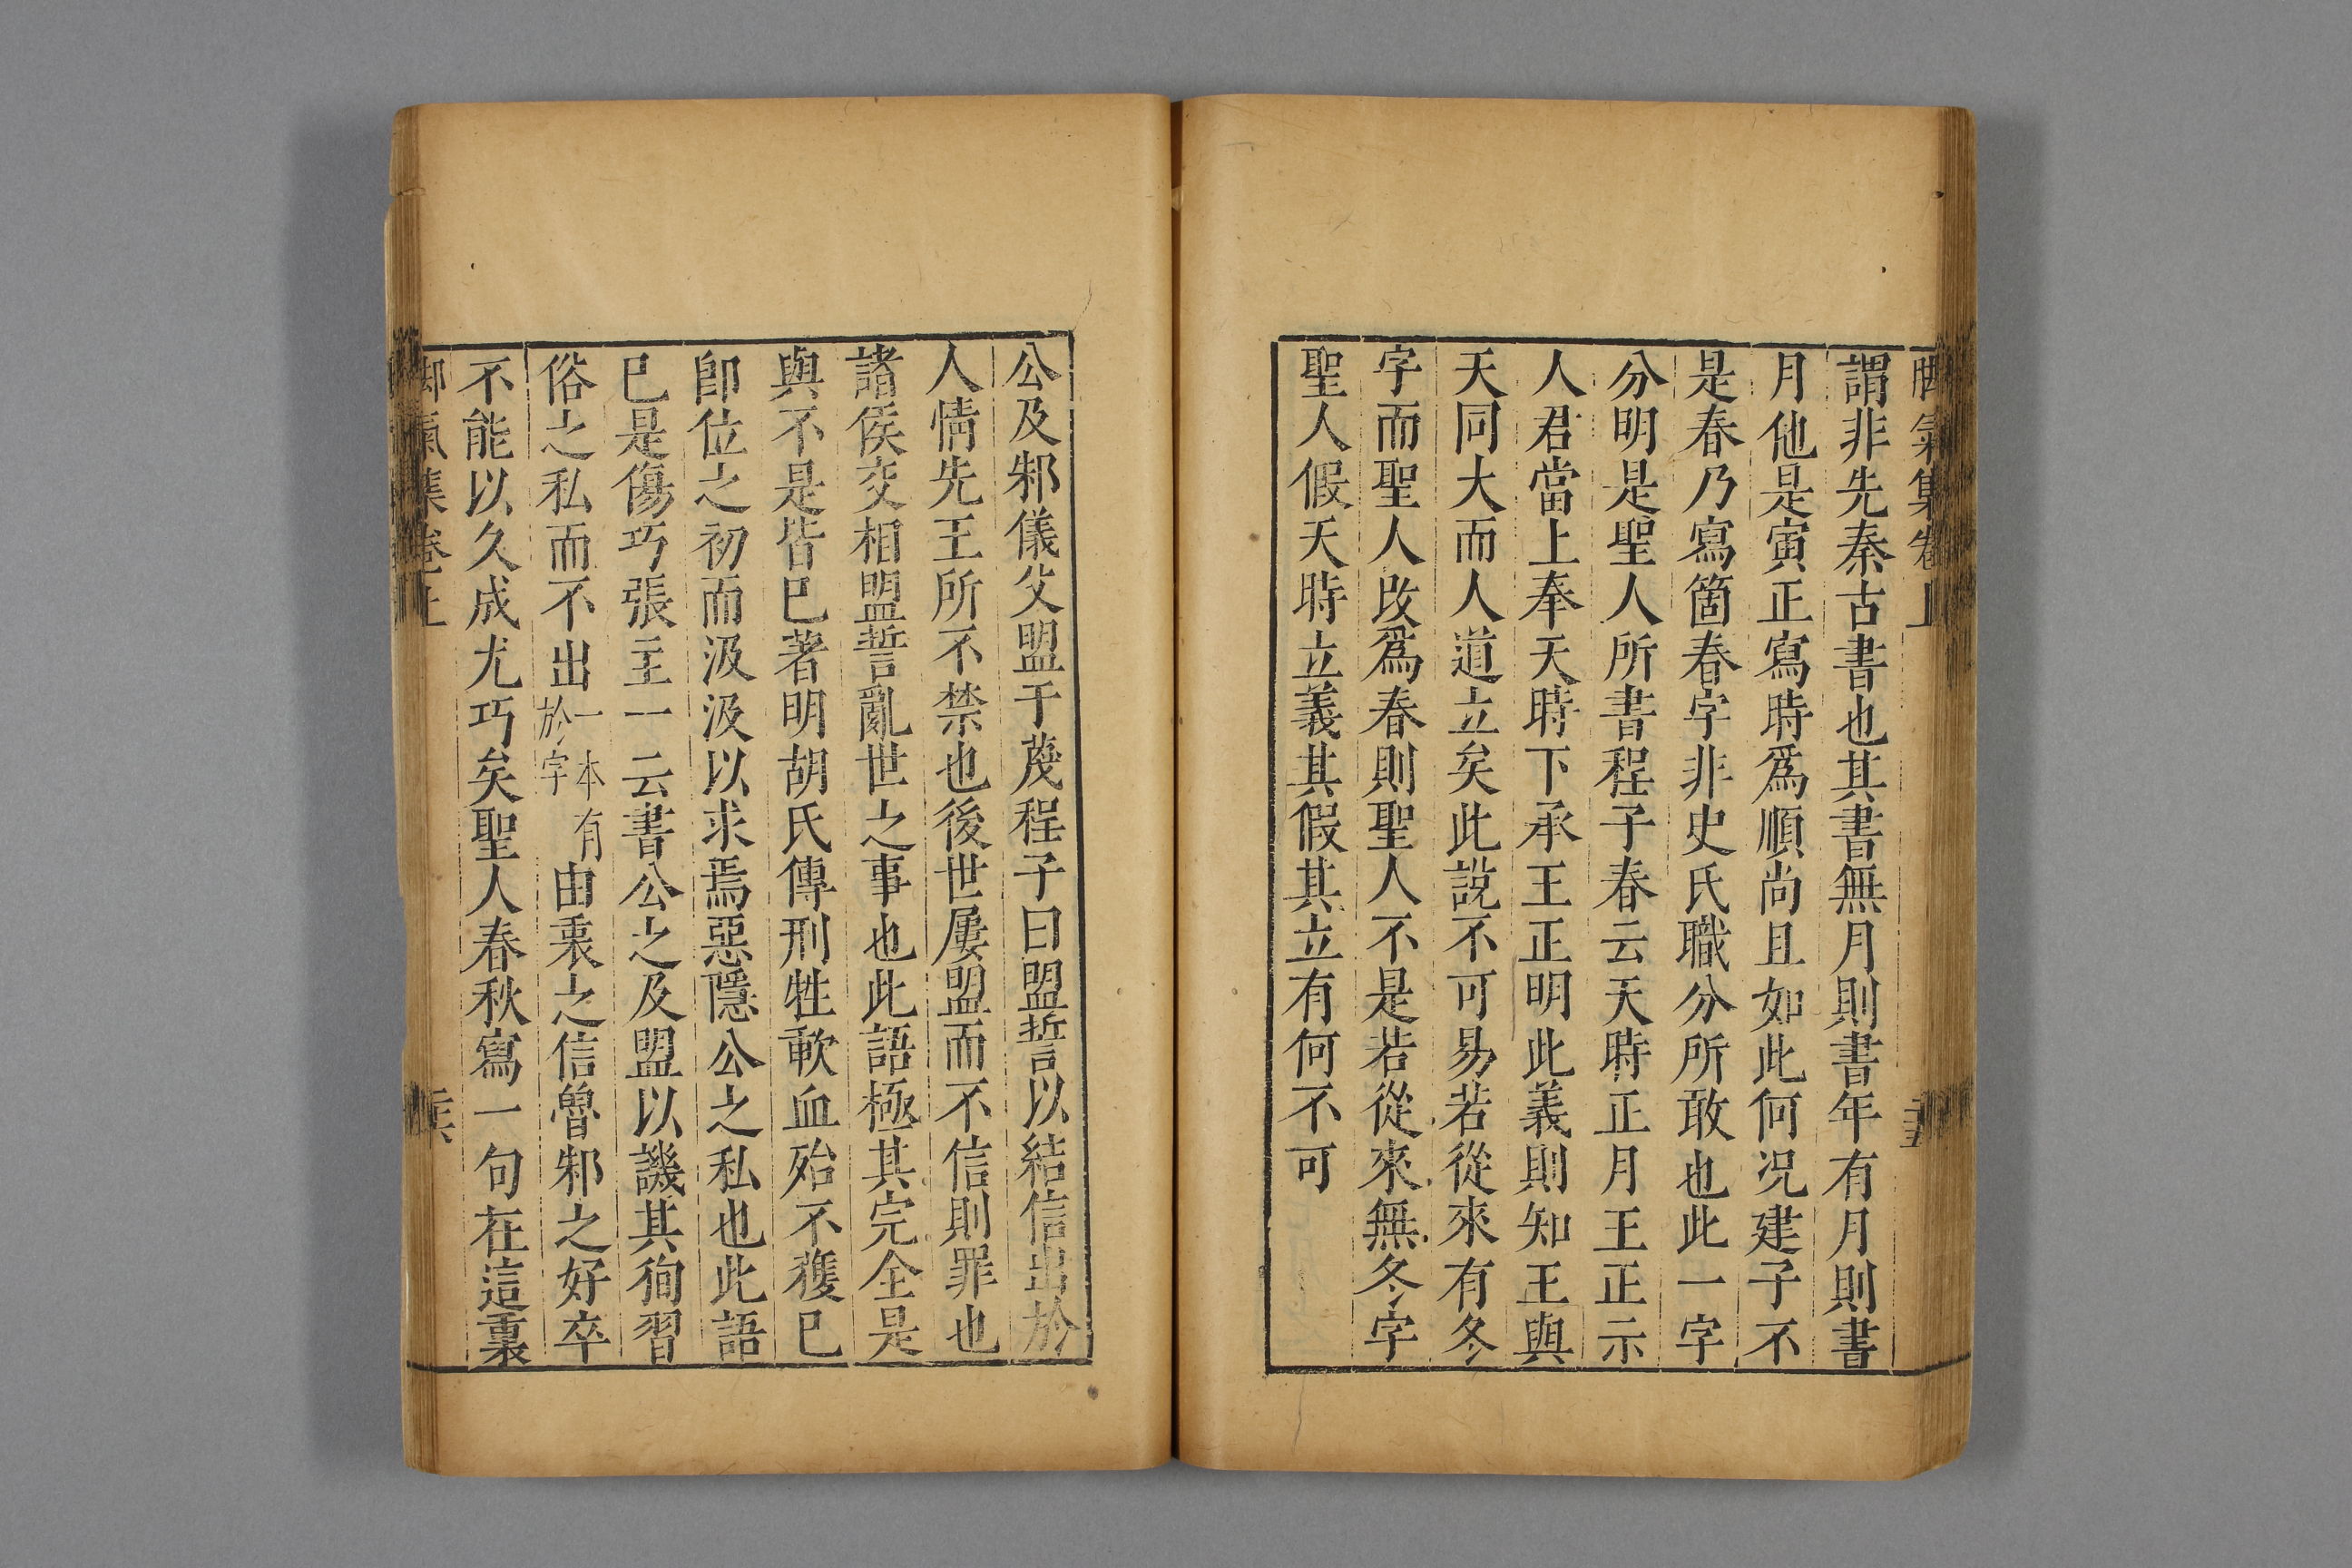 脚氣集卷上
謂非先秦古書也其書無月則書年有月則書
月他是寅正寫時爲順尚且如此何况建子不
是春乃寫箇春字非史氏職分所敢也此一字
分明是聖人所書程子春云天時正月王正示
人君當上奉天時下承王正明此義則知王與
天同大而人道立矣此說不可易若從來有冬
字而聖人改爲春則聖人不是若從來無冬字
聖人假天時立義其假其立有何不可
公及邾儀父盟于蔑程子曰盟誓以結信出於
人情先王所不禁也後世屢盟而不信則罪也
諸侯交相盟誓亂世之事也此語極其完全是
與不是皆已著明胡氏傳刑牲歃血殆不獲已
卽位之初而汲汲以求焉惡隱公之私也此語
已是傷巧張主一云書公之及盟以譏其狥習
俗之私而不出一本有於字由衷之信魯邾之好卒
不能以久成尤巧矣聖人春秋寫一句在這裏
脚氣集卷上